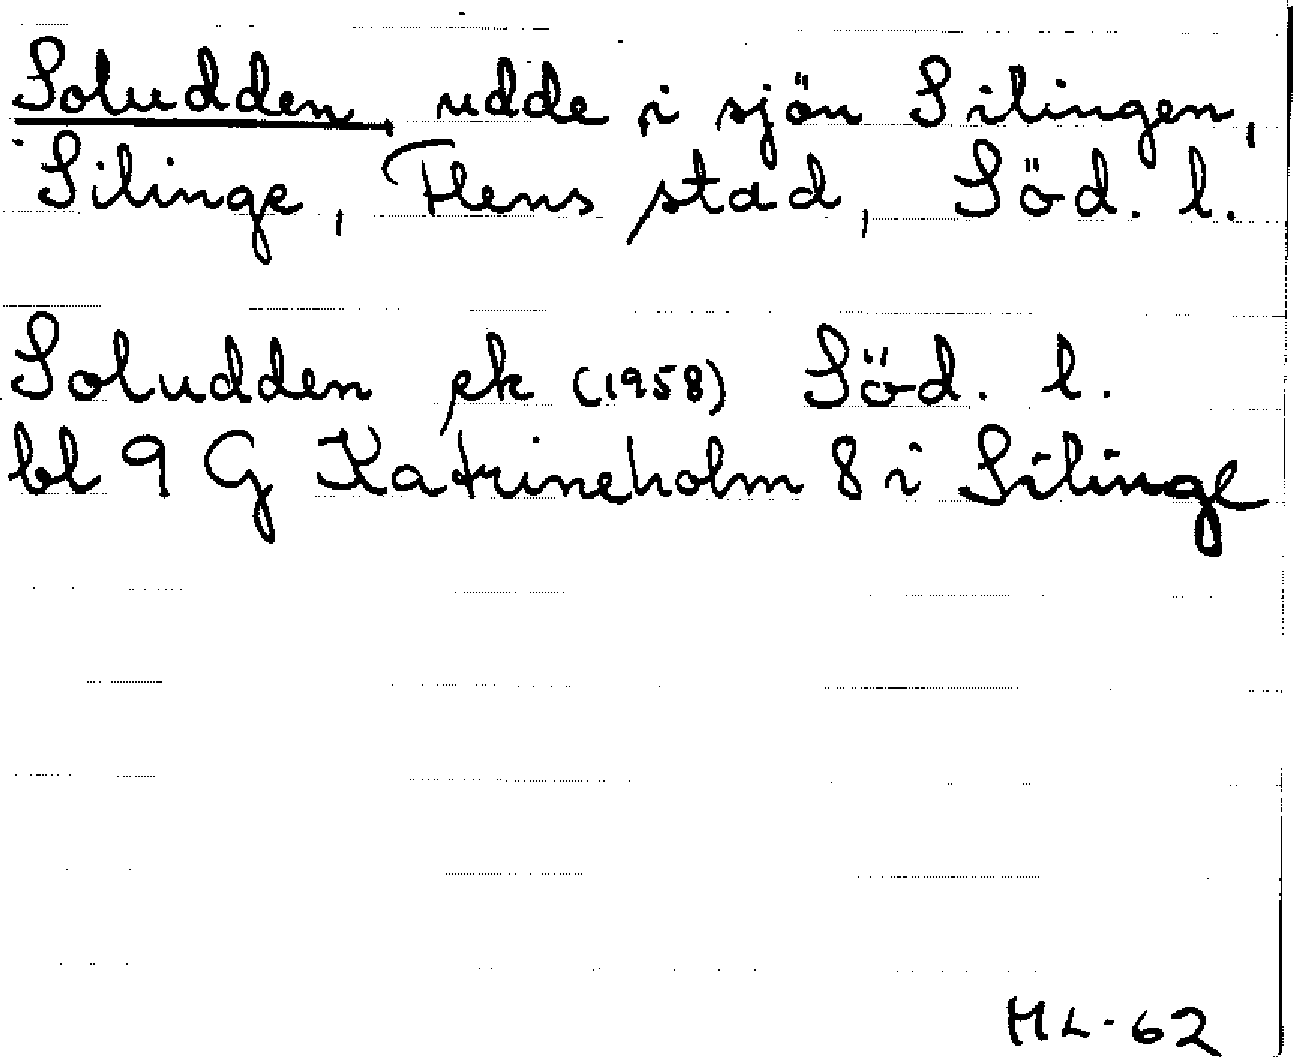 Soludden, udde i sjön Silingen,
Silinge, Flens stad, Söd. l.
Soludden ek (1958) Söd. l.
bl 9 G Katrineholm 8 i Silinge
ML-62